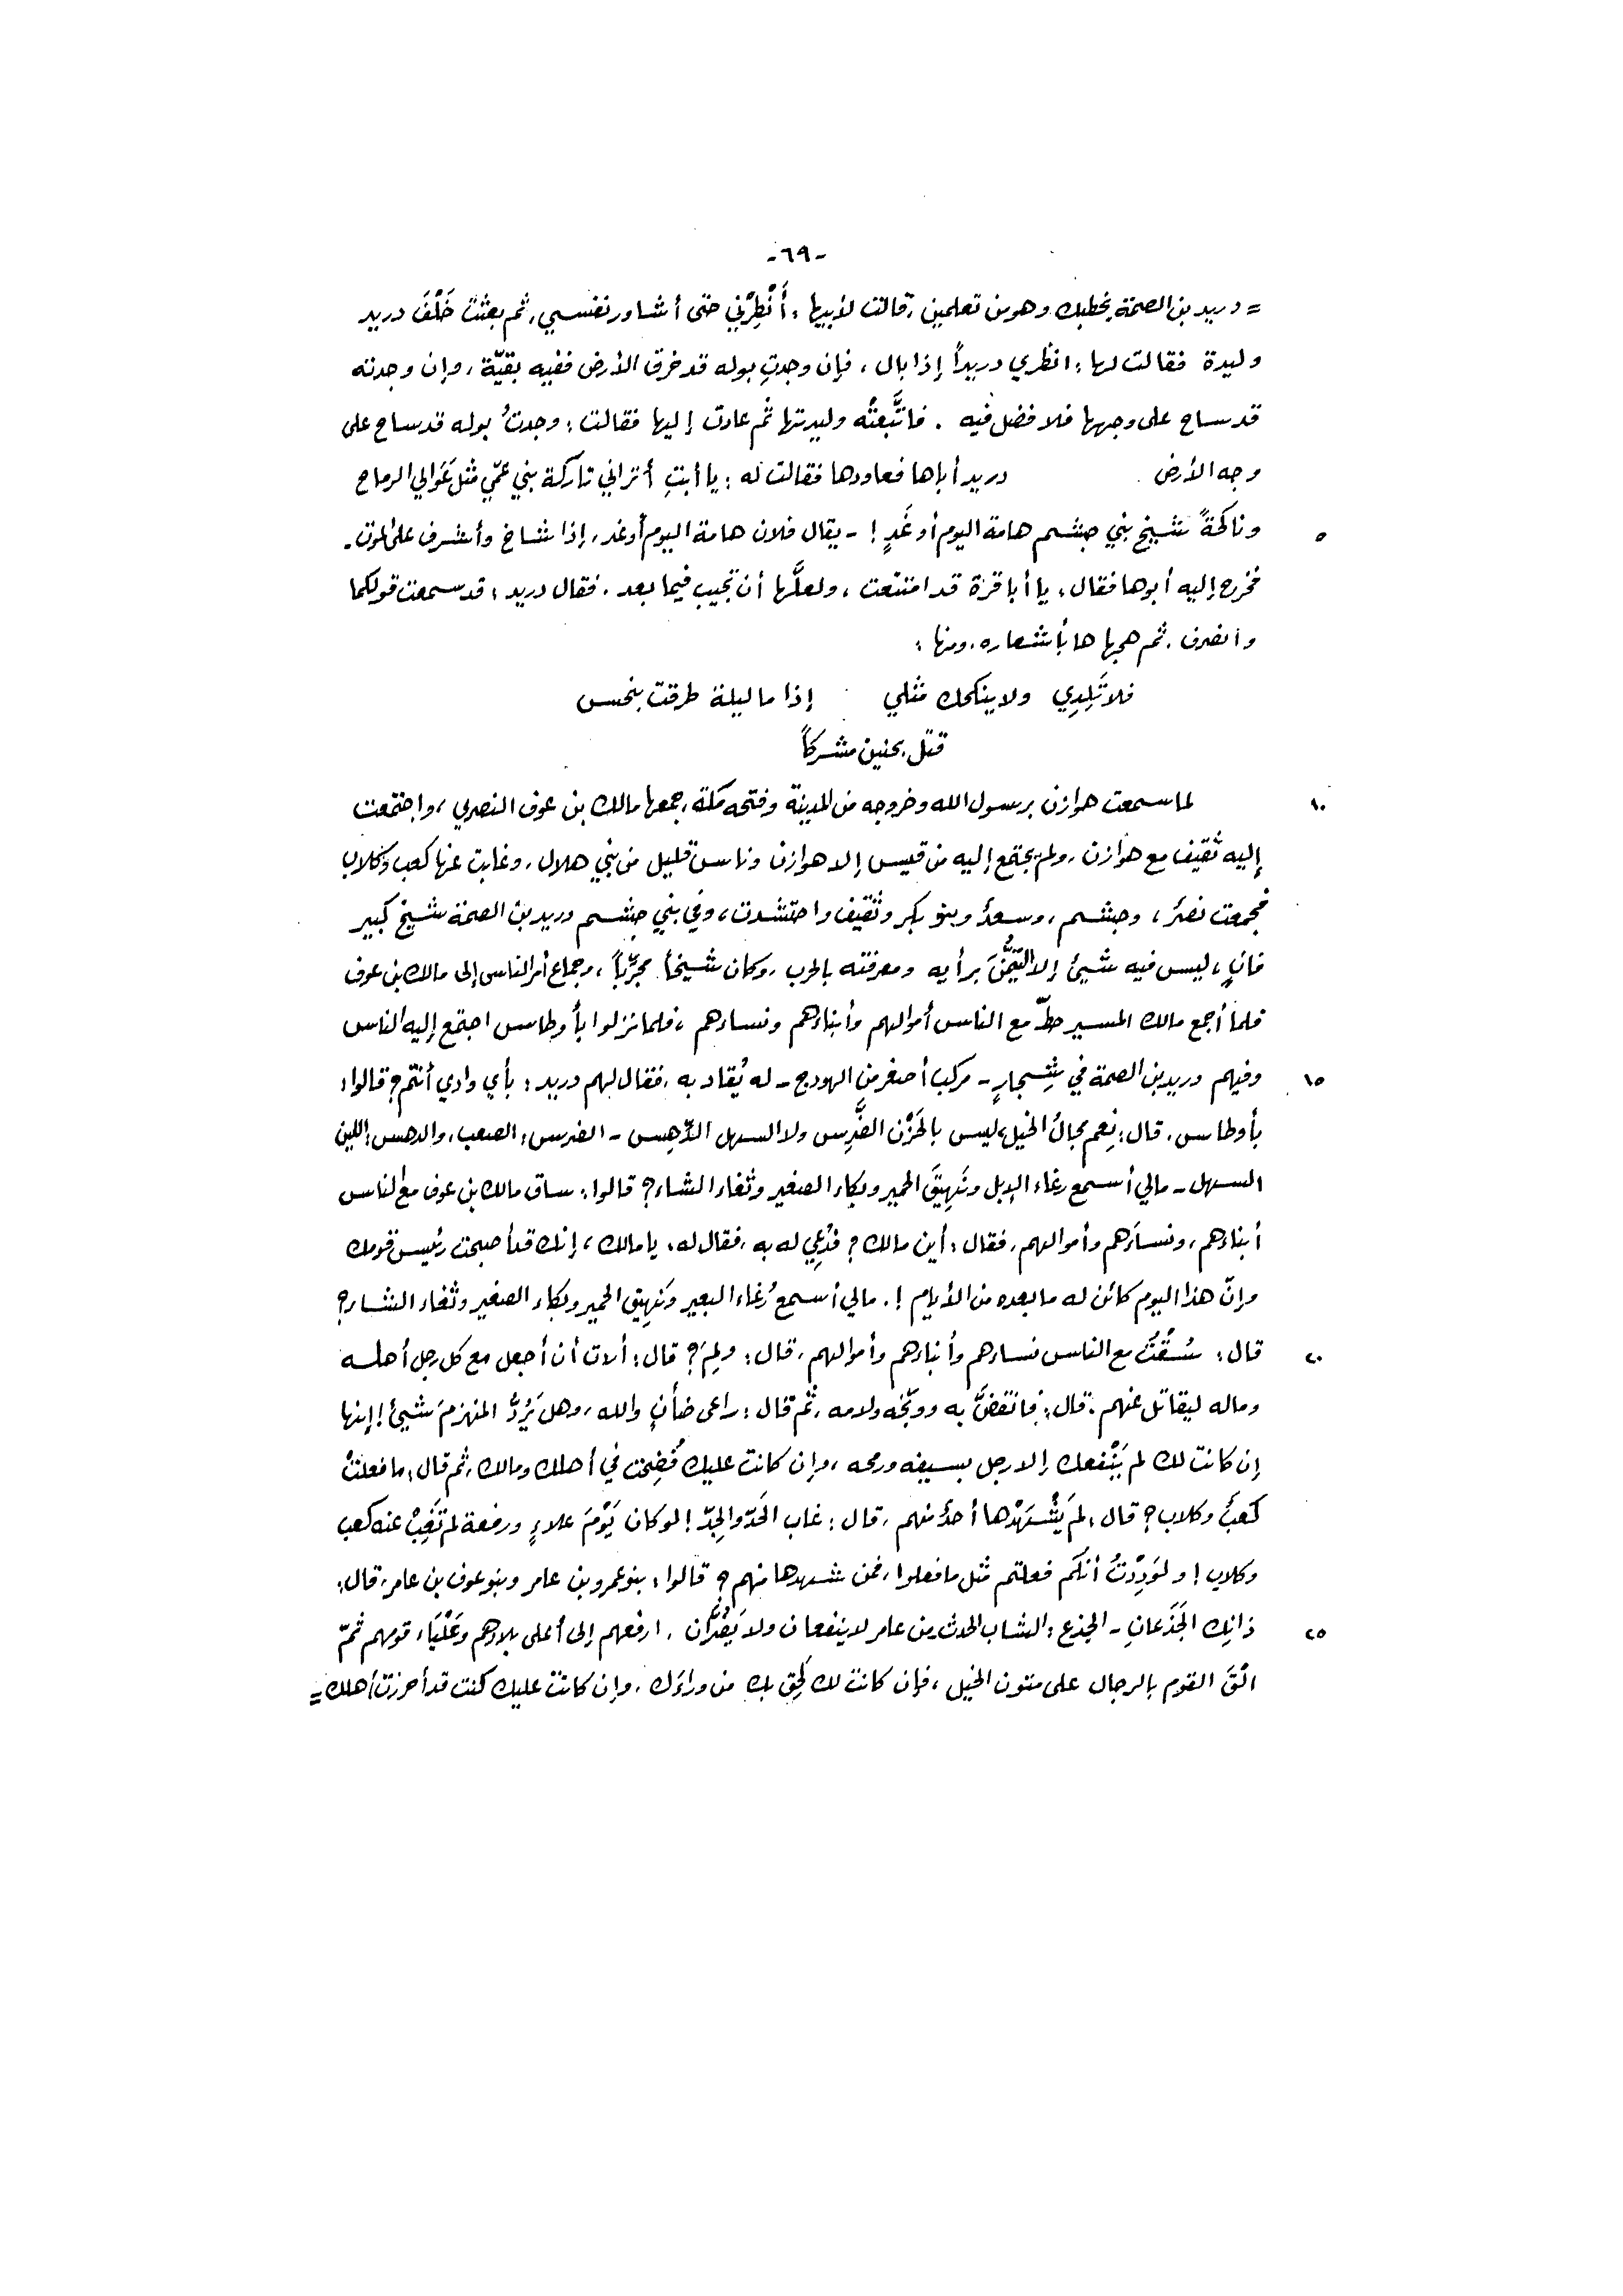 -٦٩-
= دريد بن الصمة يخطبك وهو من تعلمين، قالت لأبيها: أَنْظِرْني حتى أشاور نفسي، ثم بعثت خَلْفَ دريد
وليدة فقالت لها: انظري دريداً إذا بال، فإن وجدتِ بوله قد خرق الأرض ففيه بقيّة، وإن وجدته
قد ساح على وجهها فلا فضل فيه. فاتَّبعتْه وليدتها ثم عادت إليها فقالت: وجدتُ بوله قد ساح على
وجه الأرض دريد أباها فعاودها فقالت له: يا أبتِ أتراني تاركة بني عمّي مثل عَوَالي الرماح
٥ وناكحةً شيخ بني جشم هامة اليوم أو غَدٍ! - يقال فلان هامة اليوم أوغد، إذا شاخ وأشرف على الموت -
فخرج إليه أبوها فقال: يا أبا قرة قد امتنعت، ولعلَّها أن تجيب فيما بعد. فقال دريد: قد سمعت قولكما
وانصرف. ثم هجاها بأشعاره، ومنها:
فلا تَلِدِي ولا ينكحك مثلي إذا ما ليلة طرقت بنحس
قتل بحنين مشركاً
١٠ لما سمعت هوازن برسول الله وخروجه من المدينة وفتحه مكة، جمعها مالك بن عوف النصري، واجتمعت
إليه ثقيف مع هوازن، ولم يجتمع إليه من قيس إلا هوازن وناس قليل من بني هلال، وغابت عنها كعب وكلاب
فجمعت نصرٌ، وجشم، وسعدٌ وبنو بكر وثقيف واحتشدت، وفي بني جشم دريد بن الصمة شيخ كبير
فانٍ، ليس فيه شيئ إلا التَّيمُّنَ برأيه ومعرفته بالحرب، وكان شيخاً مجرّباً، وجماع أمر الناس إلى مالك بن عوف
فلما أجمع مالك المسير حطّ مع الناس أموالهم وأبناءهم ونساءهم، فلما نزلوا بأوطاس اجتمع إليه الناس
١٥ وفيهم دريد بن الصمة في شِجارٍ - مركب أصغر من الهودج - له يُقاد به، فقال لهم دريد: بأي وادي أنتم؟ قالوا:
بأوطاس. قال: نِعم مجالُ الخيل، ليس بالحَزْن الضَّرِس ولا السهل الدَّهِس - الضرس: الصعب، والدهس: اللين
السهل - مالي أسمع رغاء الإبل ونَهِيقَ الحمير وبكاء الصغير وثغاء الشاء؟ قالوا: ساق مالك بن عوف مع الناس
أبناءهم، ونساءَهم وأموالهم، فقال: أين مالك؟ فدُعِي له به، فقال له: يا مالك، إنك قد أصبحت رئيس قومك
وإنّ هذا اليوم كائن له ما بعده من الأيام!. مالي أسمع رُغاء البعير ونَهِيق الحمير وبكاء الصغير وثغاء الشاء؟
٢٠ قال: سُقْتُ مع الناس نساءهم وأبناءهم وأموالهم، قال: ولِمَ؟ قال: أردت أن أجعل مع كل رجل أهله
وماله ليقاتل عنهم. قال: فانقضَّ به ووبّخه ولامه، ثم قال: راعى ضأنٍ والله، وهل يَرُدُّ المنهزمَ شيئ! إنها
إن كانت لك لم يَنْفعك إلا رجل بسيفه ورمحه، وإن كانت عليك فُضِحت في أهلك ومالك، ثم قال: ما فعلتْ
كعبٌ وكلاب؟ قال: لم يَشْهَدْها أحدٌ منهم، قال: غاب الحَدّ والجِدّ! لو كان يَوْمَ علاءٍ ورفعة لم تَغِبْ عنه كعب
وكلاب! ولوَدِدْتُ أنكم فعلتم مثل ما فعلوا، فمن شهدها منهم؟ قالوا: بنو عمرو بن عامر وبنو عوف بن عامر، قال:
٢٥ ذانِك الجَذَعانِ - الجذع: الشاب الحدث من عامر لا ينفعان ولا يَضُرَّان. ارفعهم إلى أعلى بلادهم وعَلْيَاء قومهم ثمّ
الْقَ القوم بالرجال على متون الخيل، فإن كانت لك لَحِق بك من وراءَك، وإن كانت عليك كنت قد أحرزت أهلك =